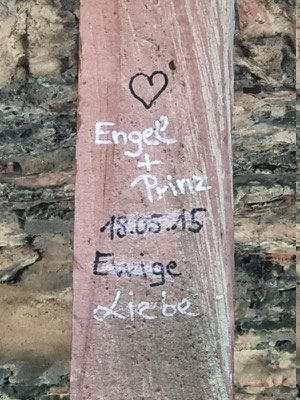 Engel
+
Prinz
18.05.15
Ewige
Liebe